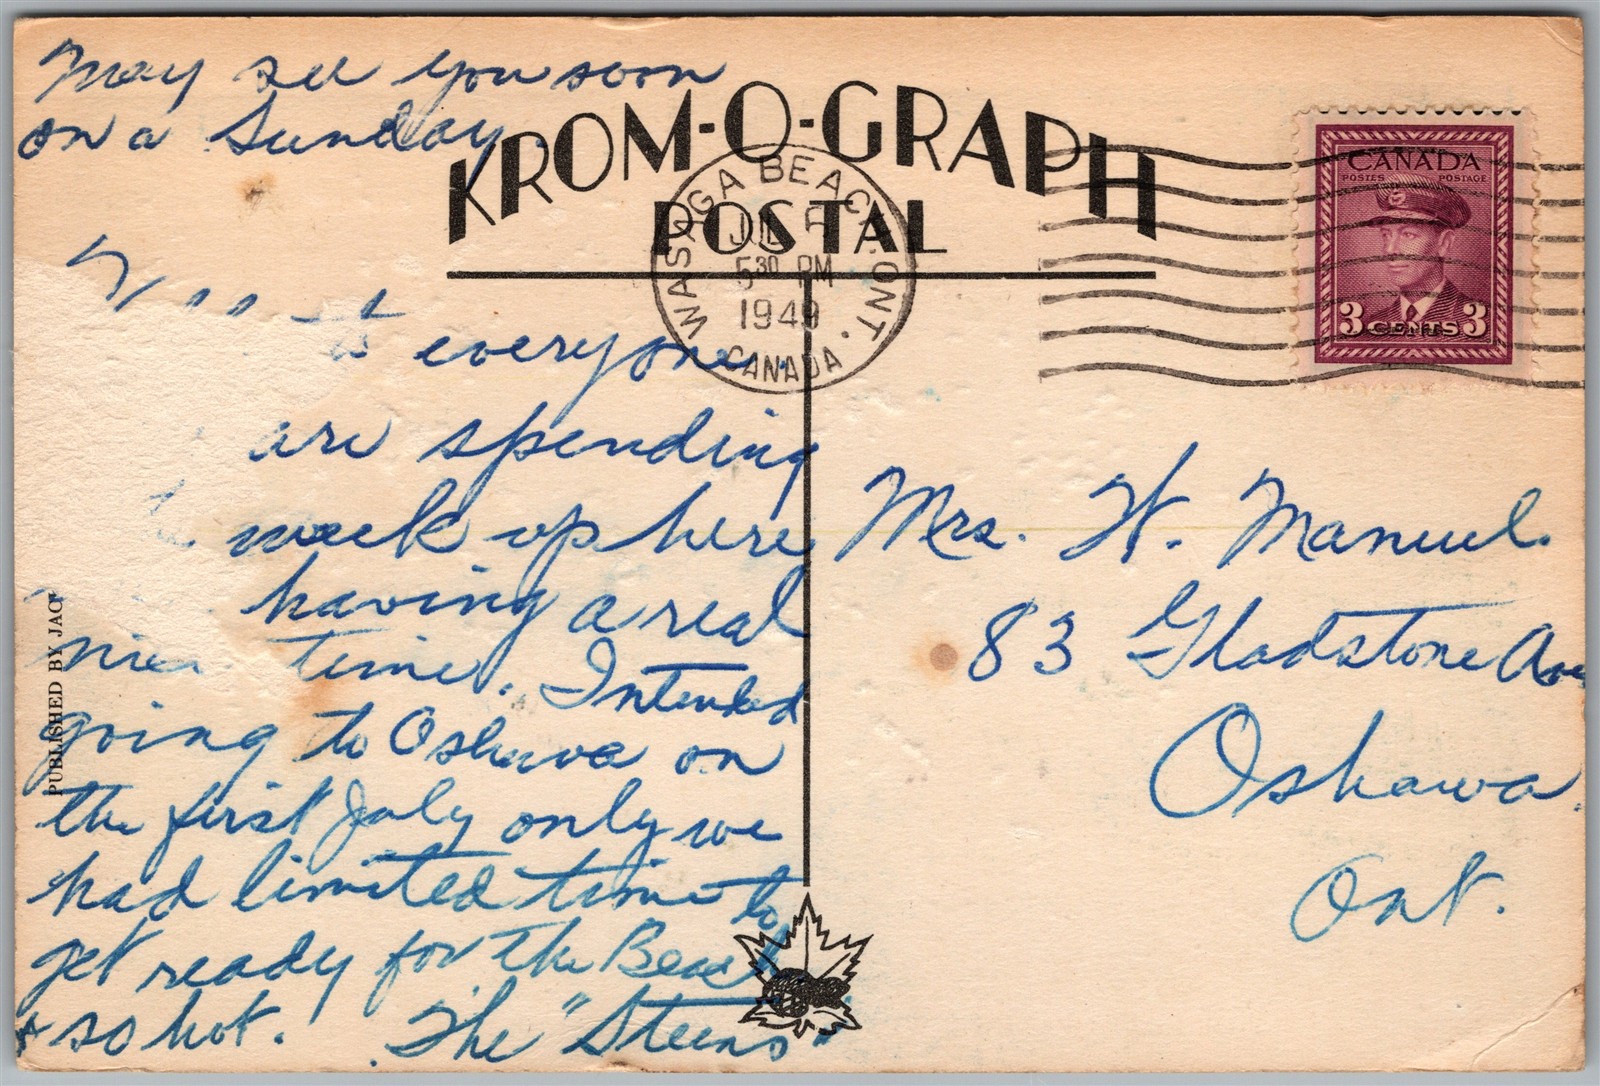 May see you soon
on a Sunday.
KROM-O-GRAPH
POSTAL
WASAGA BEACH · ONT ·
JUL
5 30 PM
1949
CANADA
CANADA
POSTES POSTAGE
3 CENTS 3
to everyone.
are spending
week up here
having a real
nice time. Intended
going to Oshawa on
the first July only we
had limited time to
get ready for the Beach
+ so hot. The "Steens"
PUBLISHED BY JAC
Mrs. W. Manuel.
83 Gladstone Ave
Oshawa.
Ont.